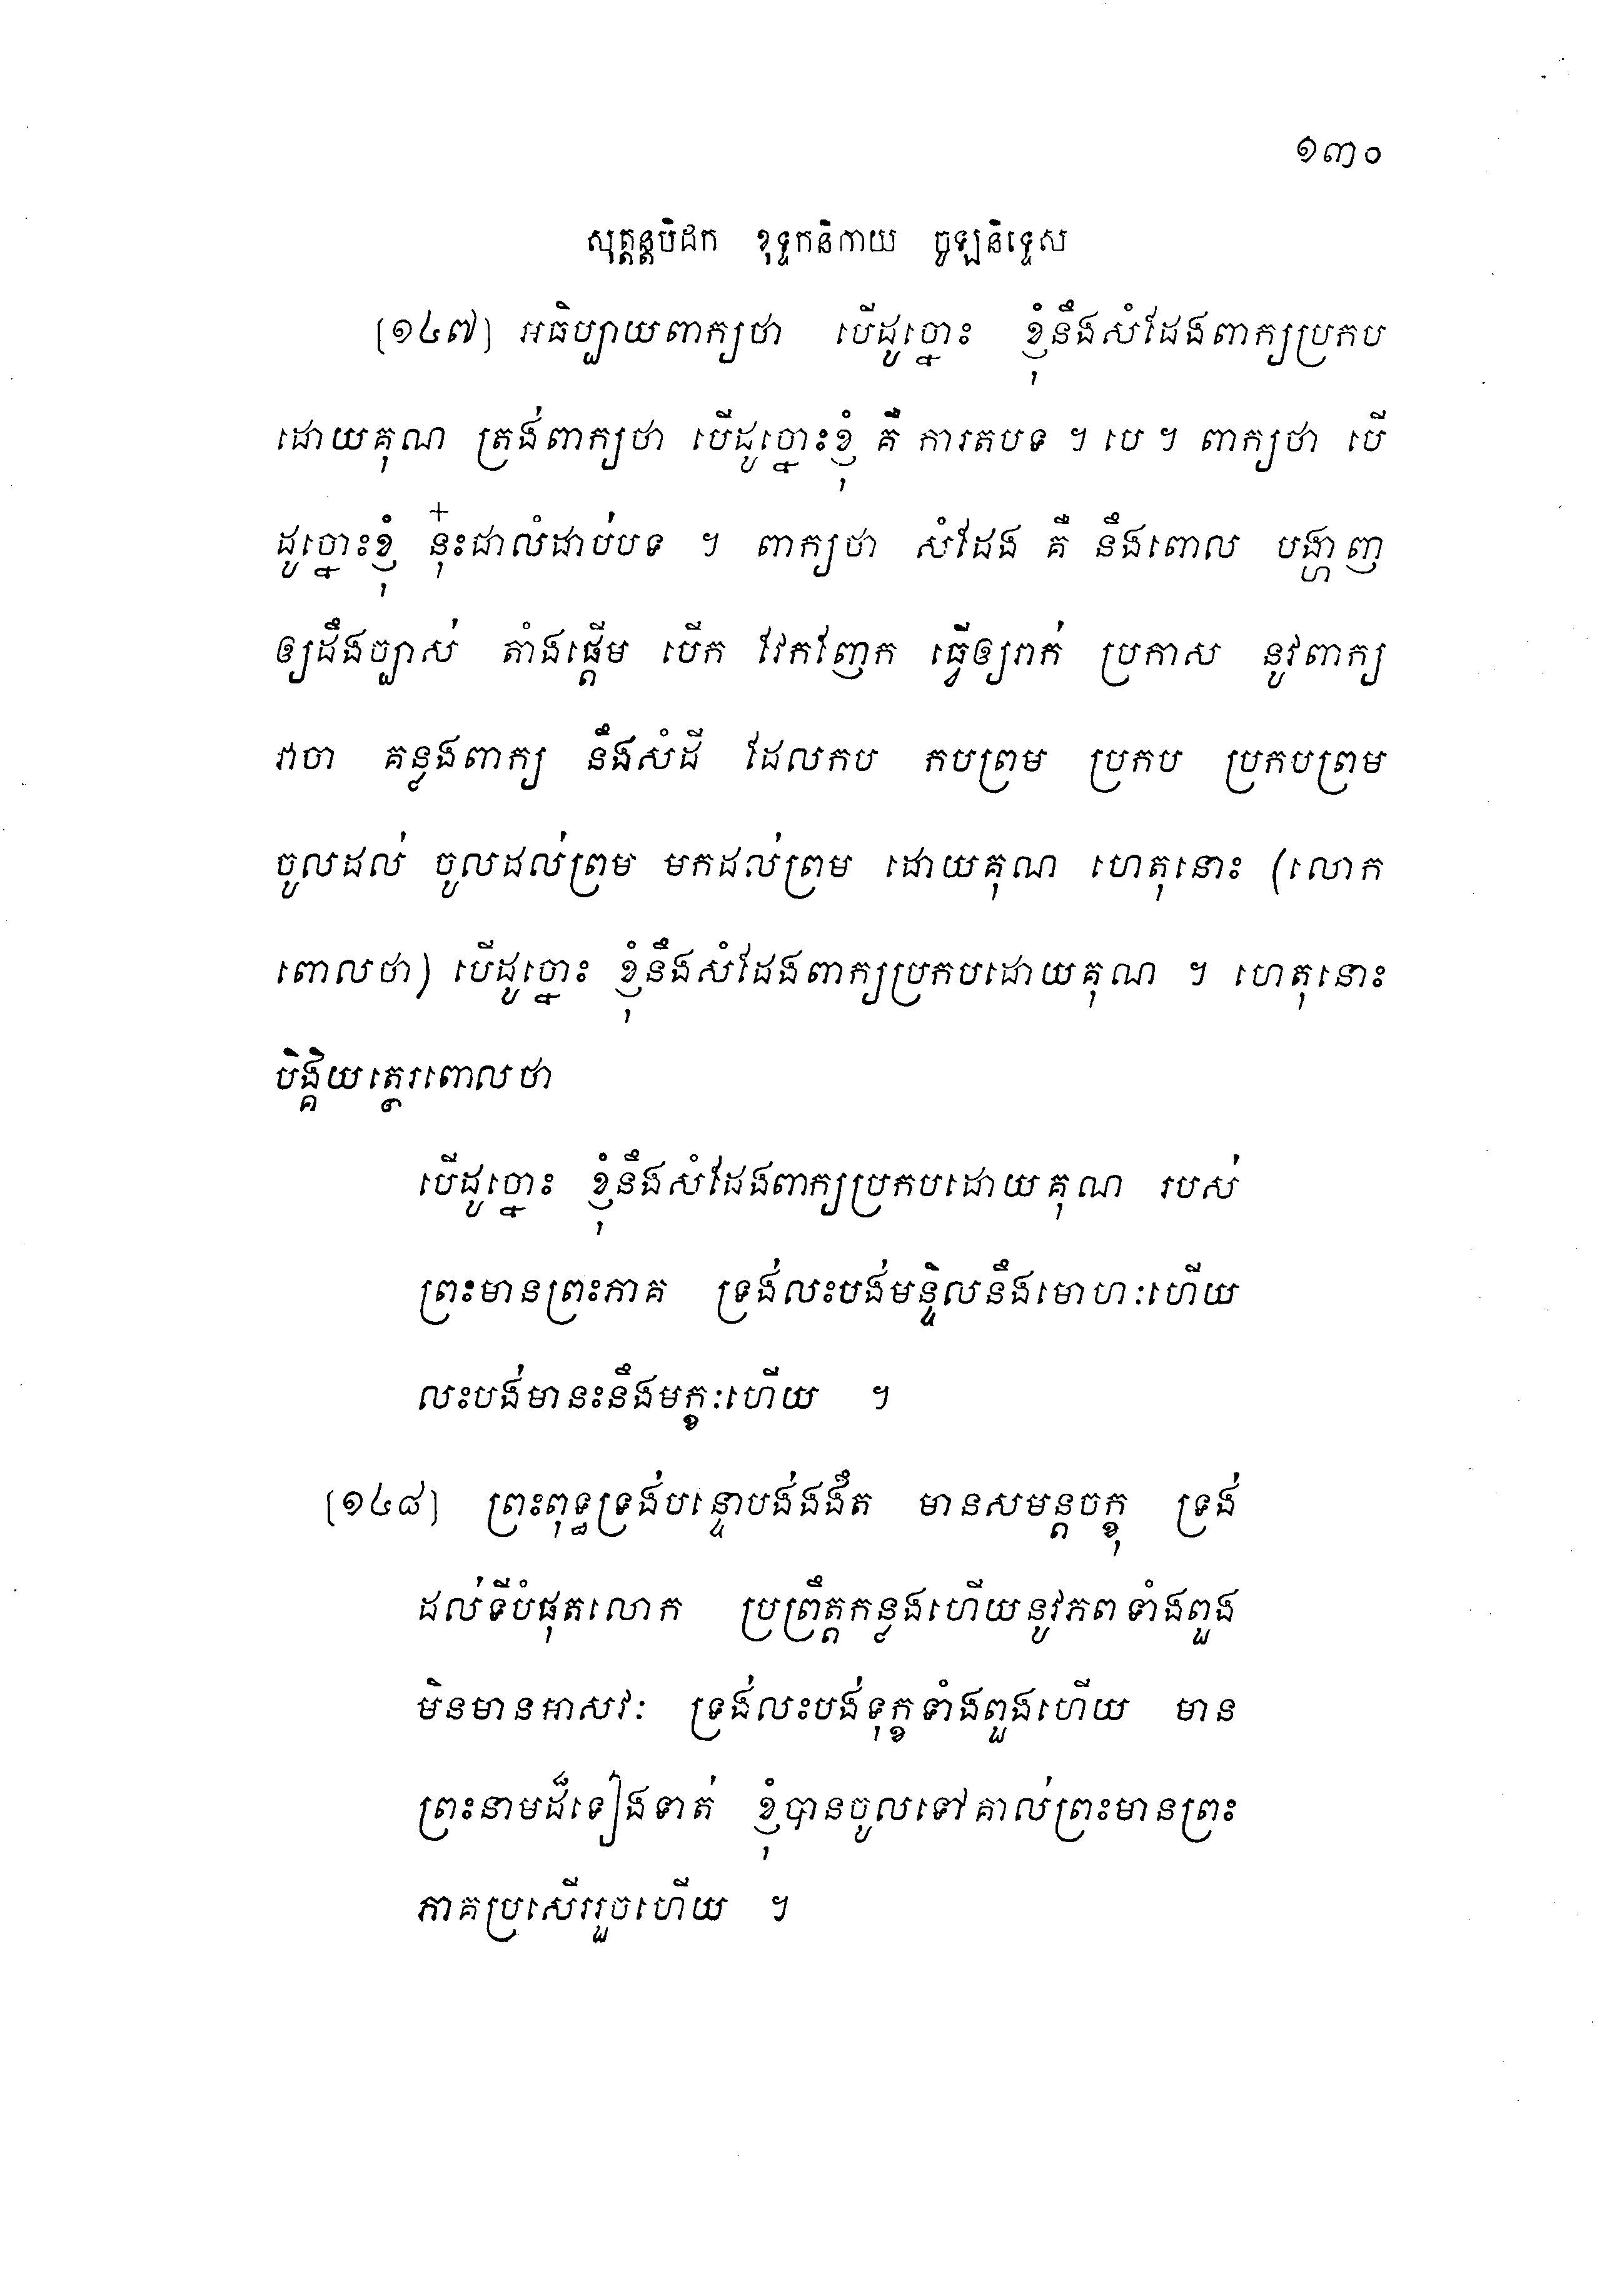 ១៣០
សុត្តន្តបិដក ខុទ្ទកនិកាយ ចូឡនិទ្ទេស
(១៤៧) អធិប្បាយពាក្យថា បើដូច្នោះ ខ្ញុំនឹងសំដែងពាក្យប្រកប
ដោយគុណ ត្រង់ពាក្យថា បើដូច្នោះខ្ញុំ គឺ ការតបទ ។ បេ ។ ពាក្យថា បើ
ដូច្នោះខ្ញុំ នុ៎ះជាលំដាប់បទ ។ ពាក្យថា សំដែង គឺ នឹងពោល បង្ហាញ
ឲ្យដឹងច្បាស់ តាំងផ្តើម បើក វែកញែក ធ្វើឲ្យរាក់ ប្រកាស នូវពាក្យ
វាចា គន្លងពាក្យ នឹងសំដី ដែលកប កបព្រម ប្រកប ប្រកបព្រម
ចូលដល់ ចូលដល់ព្រម មកដល់ព្រម ដោយគុណ ហេតុនោះ (លោក
ពោលថា) បើដូច្នោះ ខ្ញុំនឹងសំដែងពាក្យប្រកបដោយគុណ ។ ហេតុនោះ
បិង្គិយត្ថេរពោលថា
បើដូច្នោះ ខ្ញុំនឹងសំដែងពាក្យប្រកបដោយគុណ របស់
ព្រះមានព្រះភាគ ទ្រង់លះបង់មន្ទិលនឹងមោហៈហើយ
លះបង់មានះនឹងមក្ខៈហើយ ។
(១៤៨) ព្រះពុទ្ធទ្រង់បន្ទោបង់ងងឹត មានសមន្តចក្ខុ ទ្រង់
ដល់ទីបំផុតលោក ប្រព្រឹត្តកន្លងហើយនូវភពទាំងពួង
មិនមានអាសវៈ ទ្រង់លះបង់ទុក្ខទាំងពួងហើយ មាន
ព្រះនាមដ៏ទៀងទាត់ ខ្ញុំបានចូលទៅគាល់ព្រះមានព្រះ
ភាគប្រសើររួចហើយ ។